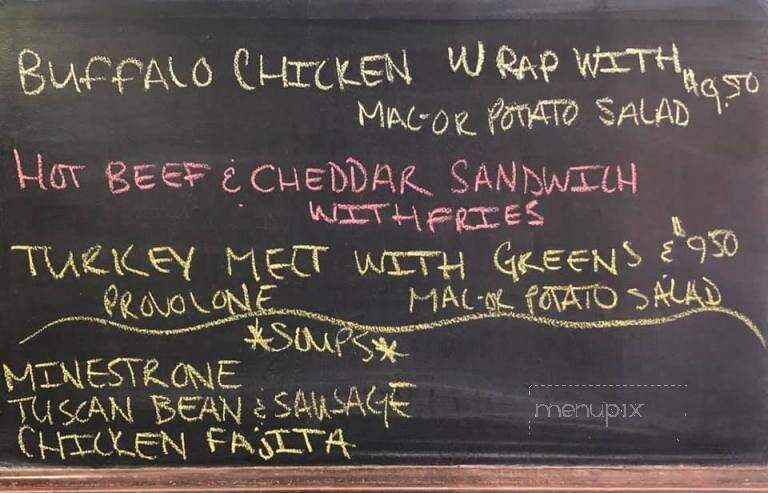 BUFFALO CHICKEN WRAP WITH $9.50
MAC-OR POTATO SALAD
HOT BEEF & CHEDDAR SANDWICH
WITH FRIES
TURKEY MELT WITH GREENS & $950
PROVOLONE MAC-OR POTATO SALAD
*SOUPS*
MINESTRONE
TUSCAN BEAN & SAUSAGE
CHICKEN FAJITA
menupix